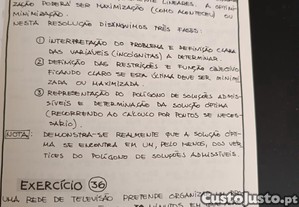 LINEARES. A OPTIMI-
ZAÇÃO PODERÁ SER MAXIMIZAÇÃO (COMO ACONTECEU) OU
MINIMIZAÇÃO.
NESTA RESOLUÇÃO DISTINGUIMOS TRÊS FASES:
① INTERPRETAÇÃO DO PROBLEMA E DEFINIÇÃO CLARA
DAS VARIÁVEIS (INCÓGNITAS) A DETERMINAR.
② DEFINIÇÃO DAS RESTRIÇÕES E FUNÇÃO OBJECTIVO
FICANDO CLARO SE ESTA ÚLTIMA DEVE SER MINIMI-
ZADA OU MAXIMIZADA.
③ REPRESENTAÇÃO DO POLÍGONO DE SOLUÇÕES ADMIS-
SÍVEIS E DETERMINAÇÃO DA SOLUÇÃO ÓPTIMA
(RECORRENDO AO CÁLCULO POR PONTOS SE NECES-
SÁRIO).
NOTA: DEMONSTRA-SE REALMENTE QUE A SOLUÇÃO ÓPTI-
MA SE ENCONTRA EM UM, PELO MENOS, DOS VÉR-
TICES DO POLÍGONO DE SOLUÇÕES ADMISSÍVEIS.
EXERCÍCIO 36
UMA REDE DE TELEVISÃO PRETENDE ORGANIZAR
MINUTOS EM
CustoJusto.pt